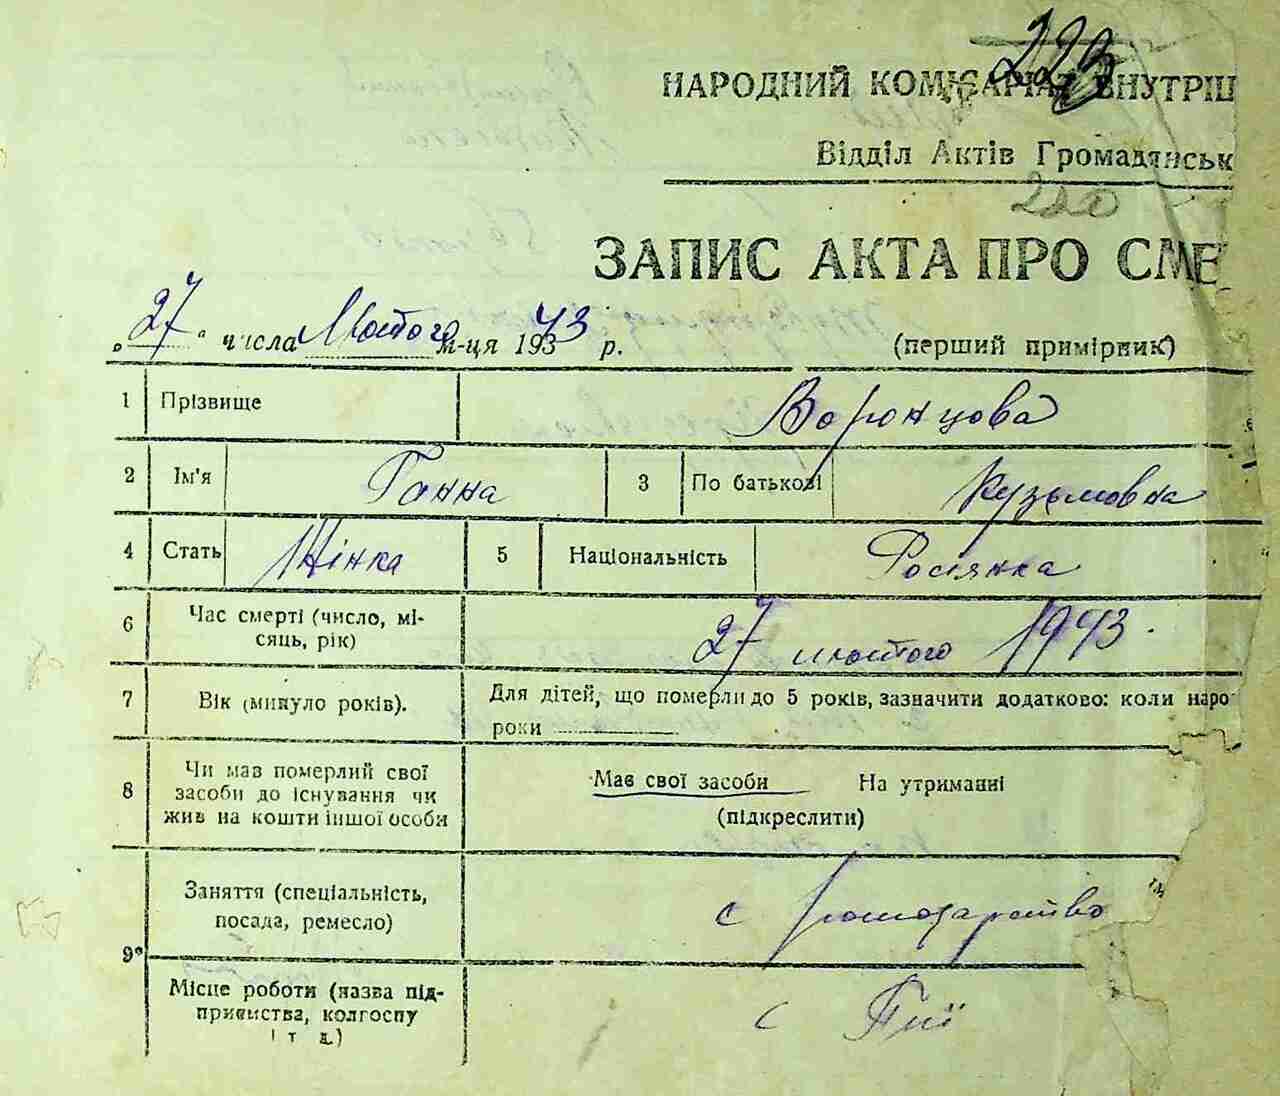 223
НАРОДНИЙ КОМІСАРІАТ ВНУТРІШ
Відділ Актів Громадянськ
220
ЗАПИС АКТА ПРО СМЕ
„27“ числа Лютого м-ця 1943 р. (перший примірник)
1 Прізвище Воронцова
2 Ім'я Ганна 3 По батькові Кузьмовна
4 Стать Жінка 5 Національність Росіянка
6 Час смерті (число, мі-
сяць, рік) 27 лютого 1943
7 Вік (минуло років). Для дітей, що померли до 5 років, зазначити додатково: коли наро
роки
8 Чи мав померлий свої
засоби до існування чи
жив на кошти іншої особи
Має свої засоби На утриманні
(підкреслити)
9 Заняття (спеціальність,
посада, ремесло) с господарство
Місце роботи (назва під-
приємства, колгоспу
і т д.) с Пії